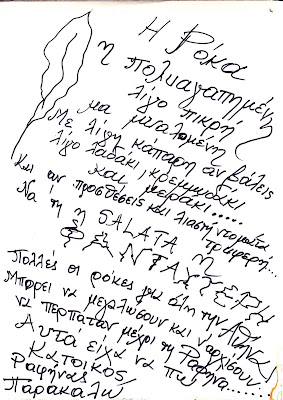 Η Ρόκα
η πολυαγαπημένη
λίγο πικρή
μα μυαλωμένη
Με λίγη κάπαρη αν βάλεις
λίγο λαδάκι, κρεμμυδάκι
και μεράκι.....
Και αν προσθέσεις και λιαστή ντομάτα
Να τη η SALATA η τρυφερή...
ΦΑΝΤΑΧΤΕΡΗ
Πολλές οι ρόκες για όλη την Αθήνα!
Μπορεί να μεγαλώσουν και ν' αρχίσουν
να περπατάν μέχρι τη Ραφήνα......
Αυτά είχα να πω
Κάτοικος
Ραφήνας
Παρακαλώ